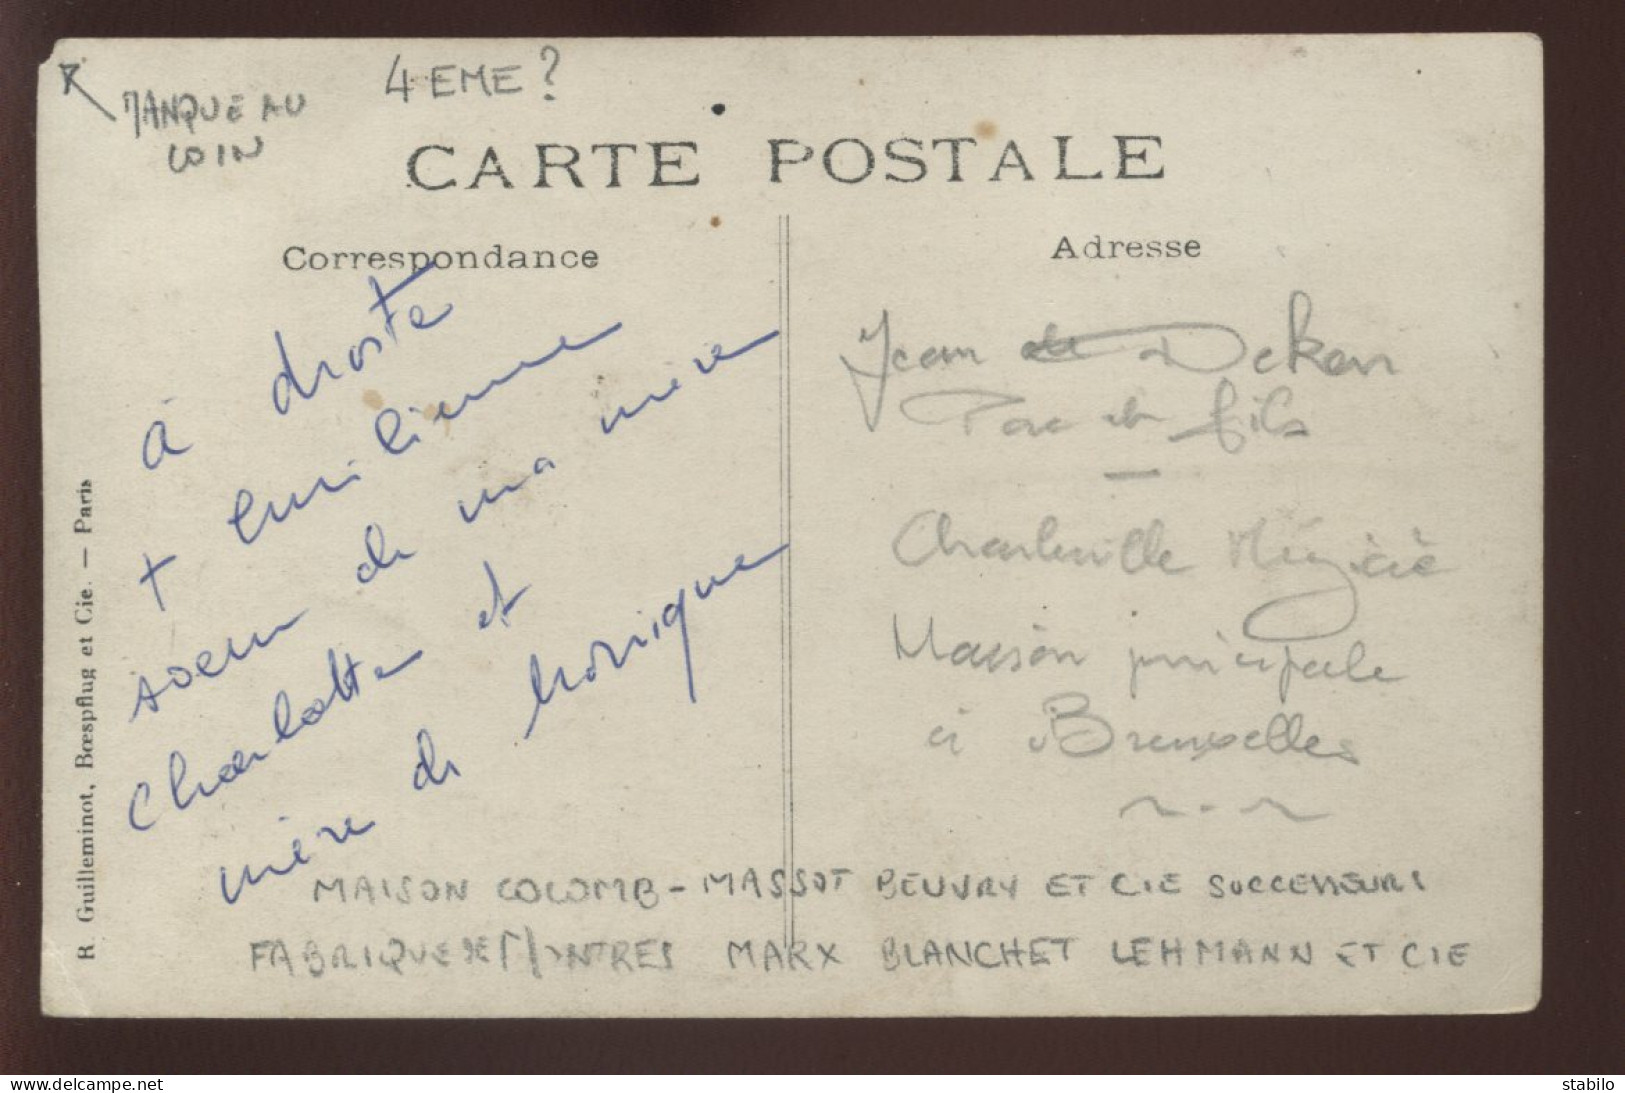 MANQUE AU
COIN
4 EME ?
CARTE POSTALE
Correspondance
Adresse
à droite
+ emilienne
soeur de ma mère
Charlotte et
mère de Monique
Jean Deken
et fils
Charleville Mézière
Maison principale
à Bruxelles
MAISON COLOMB - MASSOT BEUVRY ET CIE SUCCESSEURS
FABRIQUE DE MONTRES MARX BLANCHET LEHMANN ET CIE
R Guilleminot, Bœspflug et Cie. — Paris
www.delcampe.net
stabilo